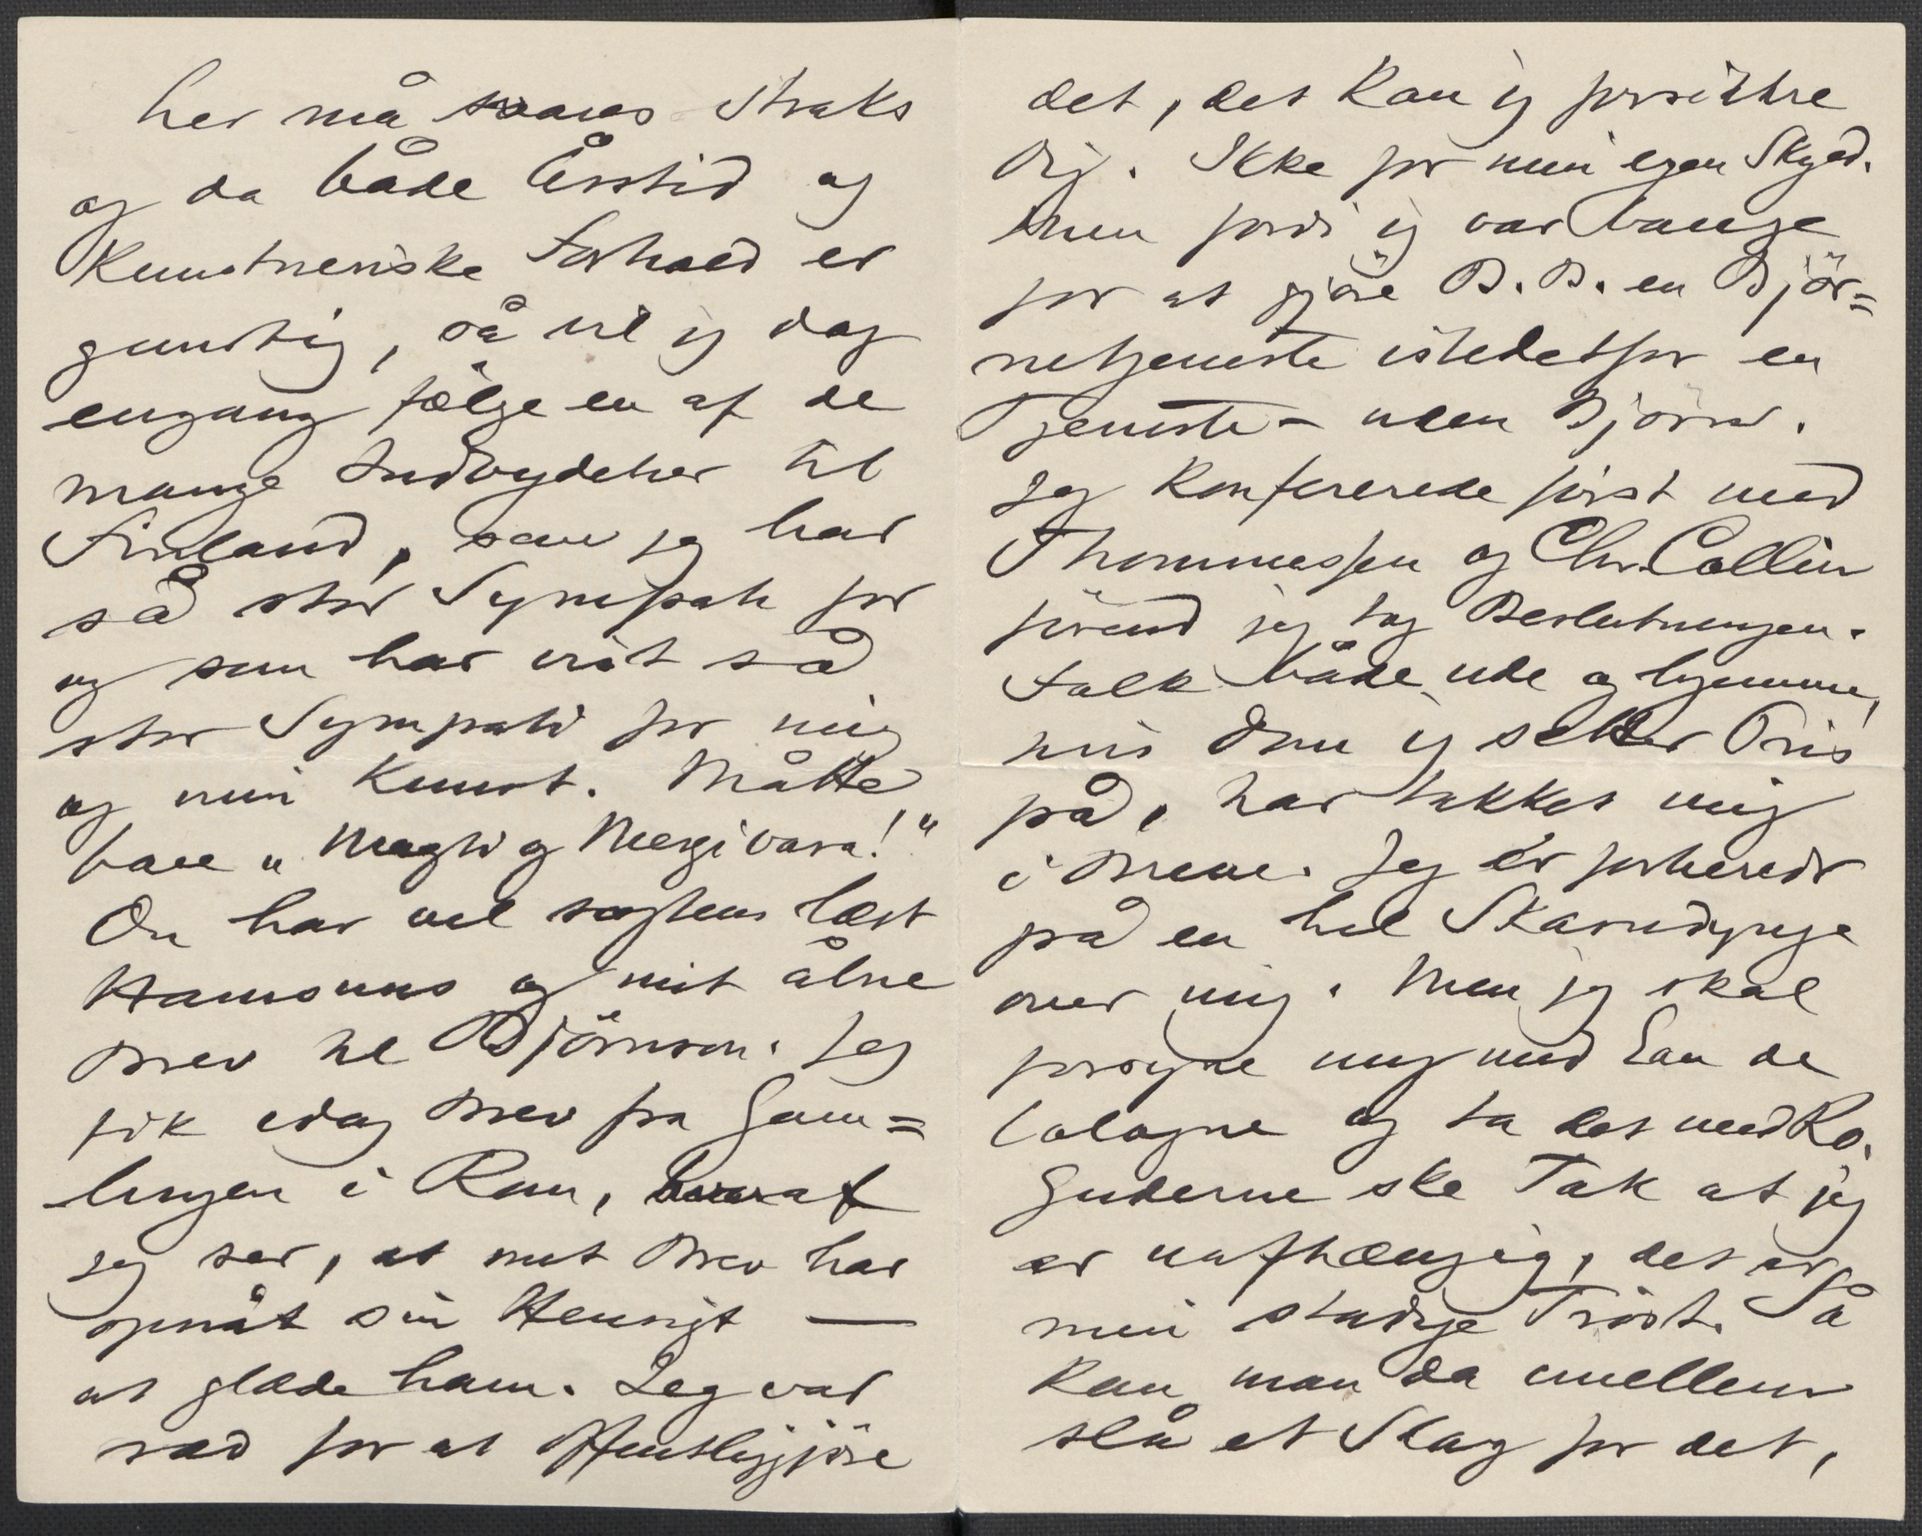 her må svares straks
og da både Årstid og
Kunstneriske Forhold er
gunstig, så vil jeg dog
engang følge en af de
mange Indbydelser til
Finland, som jeg har
så stor Sympati for
og som har vist så
stor Sympati for mig
og min Kunst. Måtte
bare "Magtig
Du har vel sagtens læst
Hamsuns og mit åbne
Brev til Björnson. Jeg
fik idag Brev fra Gam=
lingen i Rom, hvoraf
jeg ser, at mit Brev har
opnåt sin Hensigt —
at glæde ham. Jeg var
ræd for at offentliggjöre
det, det kan jeg forsikkre
Dig. Ikke for min egen Skyld.
Men fordi jeg var bange
for at gjöre B. B. en Björ=
netjeneste istedetfor en
Tjeneste – uden Björn.
Jeg konfererede först med
Thommessen og Chr. Collin
förend jeg tog Beslutningen.
Folk både ude og hjemme,
hvis Dom jeg sætter Pris
på, har takket mig
i Breve. Jeg er forberedt
på en hel Skarndynge
over mig. Men jeg skal
forsyne mig med Eau de
Cologne og ta det med Ro.
Guderne ske Tak at jeg
er uafhængig, det er
min stadige Tröst. Så
kan man da imellem
slå et Slag for det,